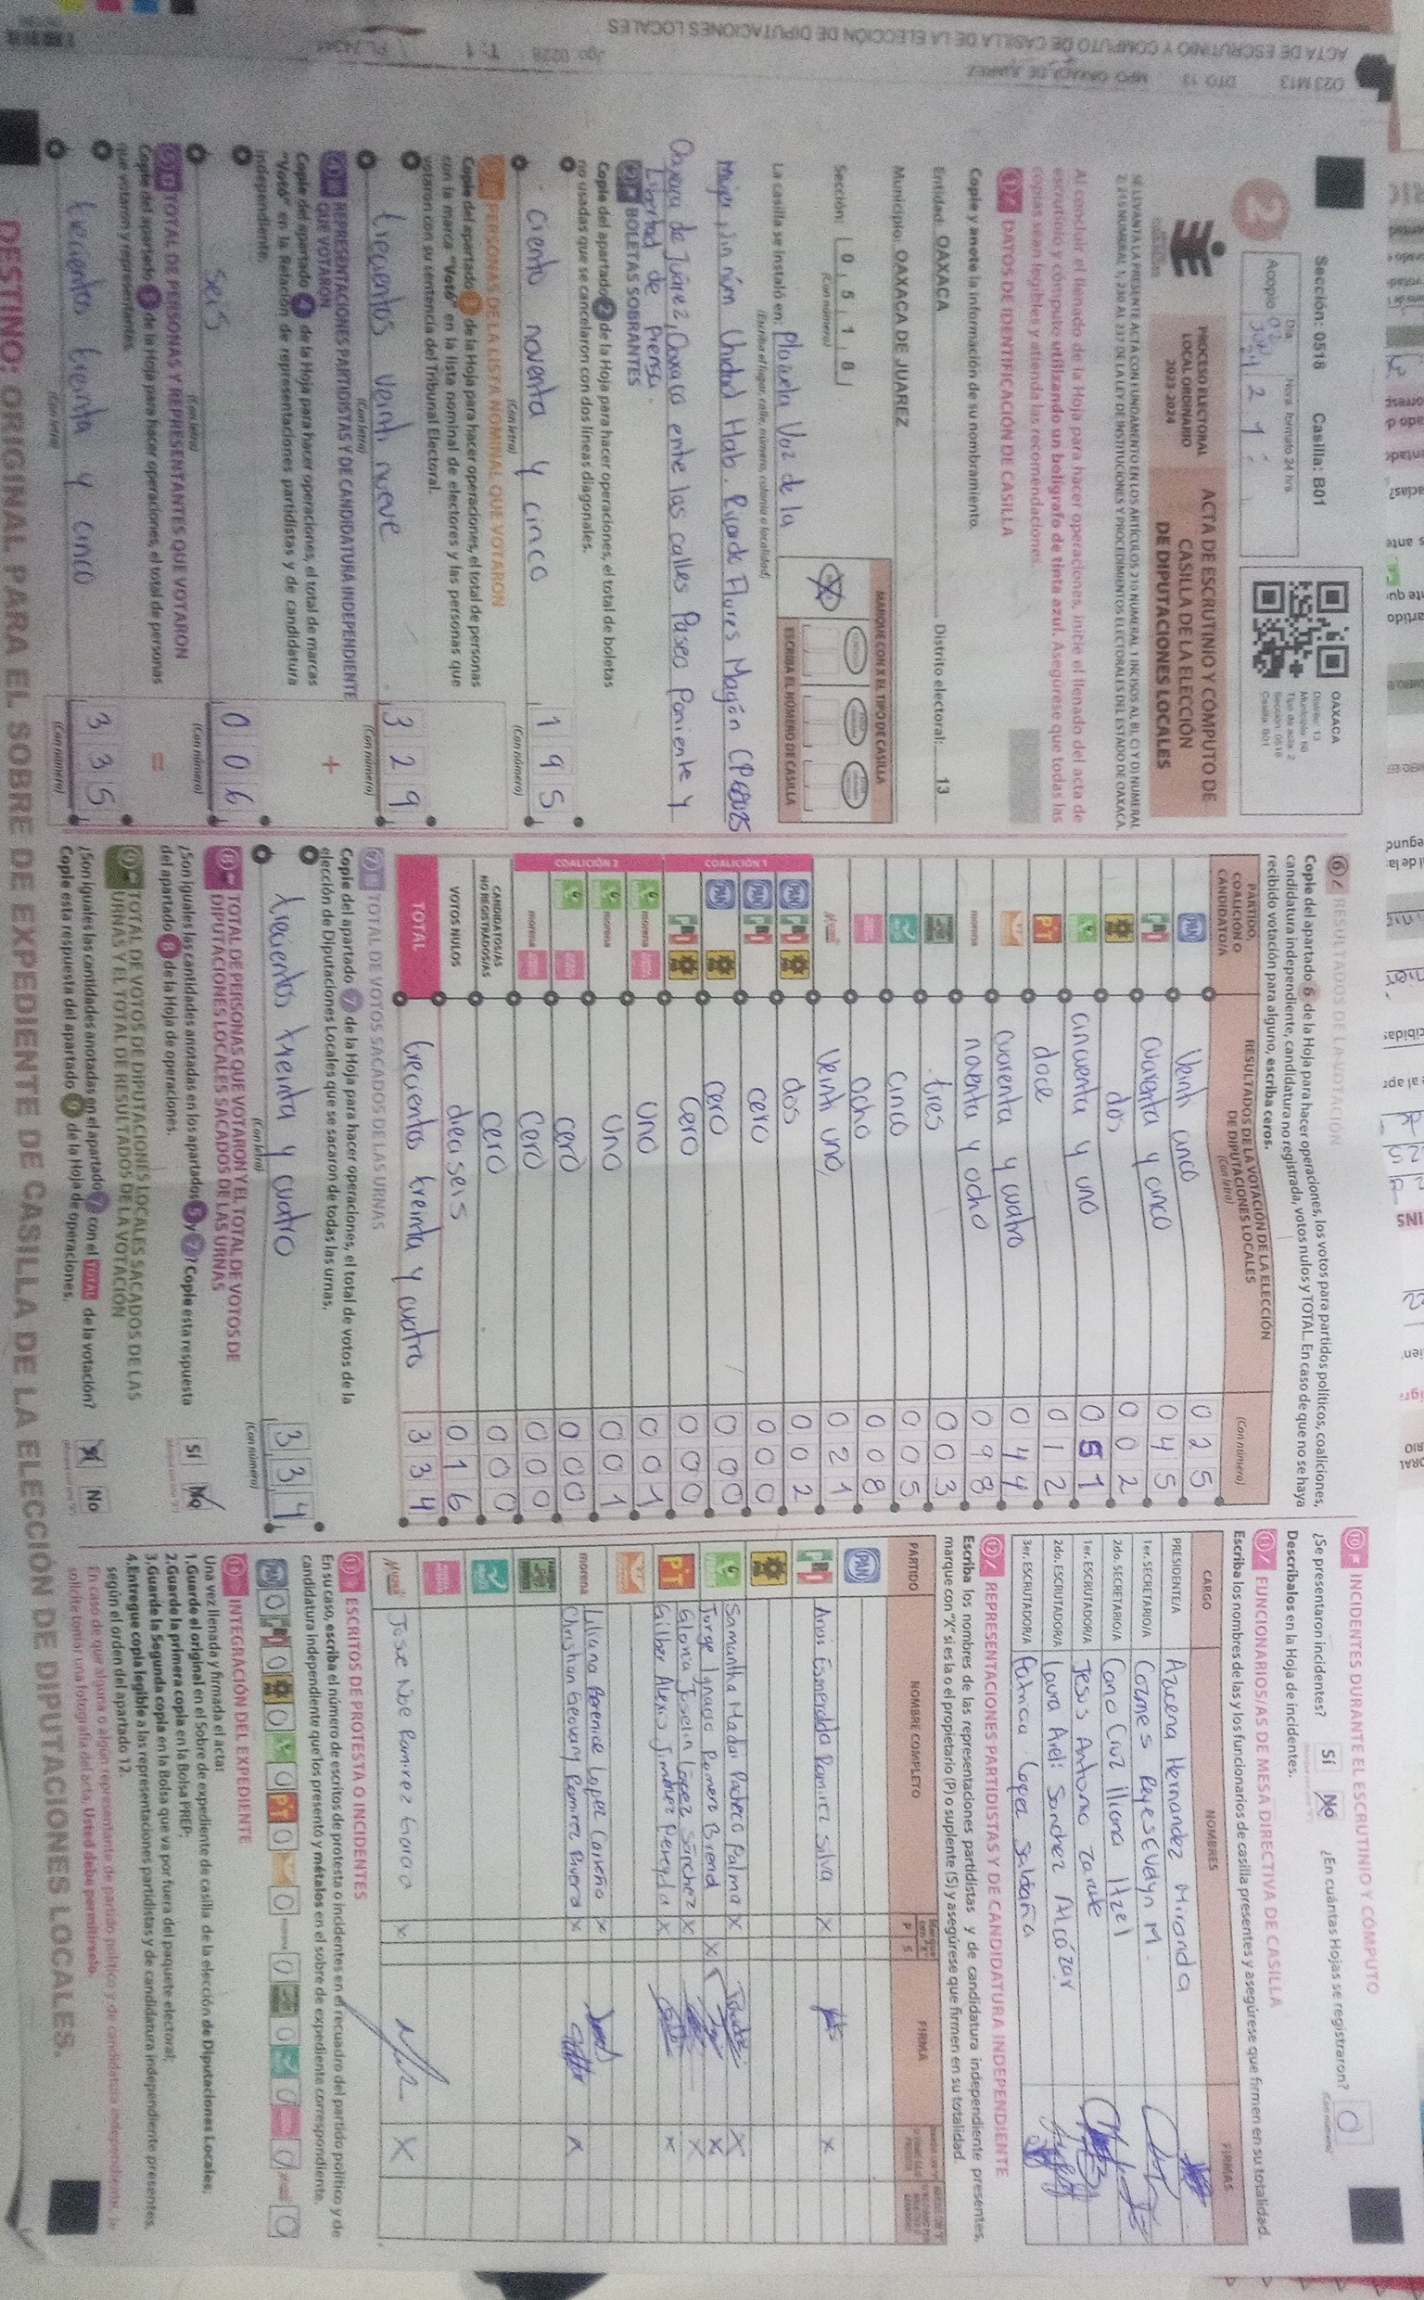 Sección: 0518 Casilla: B01
Día
Hora formato 24 hrs
Acopio
2
OAXACA
Distrito: 13
Tipo de acta: 2
Sección: 0518
Casilla: B01
PROCESO ELECTORAL
LOCAL ORDINARIO
2023-2024
ACTA DE ESCRUTINIO Y CÓMPUTO DE
CASILLA DE LA ELECCIÓN
DE DIPUTACIONES LOCALES
Al concluir el llenado de la Hoja para hacer operaciones, inicie el llenado del acta de
escrutinio y cómputo utilizando un bolígrafo de tinta azul. Asegúrese que todas las
copias sean legibles y atienda las recomendaciones.
1 DATOS DE IDENTIFICACIÓN DE CASILLA
Copie y anote la información de su nombramiento.
Entidad: OAXACA Distrito electoral: 13
Municipio: OAXACA DE JUAREZ
Sección: 0 5 1 8
(Con número)
MARQUE CON X EL TIPO DE CASILLA
ESCRIBA EL NÚMERO DE CASILLA
La casilla se instaló en: Plazuela Voz de la
(Escriba el lugar, calle, número, colonia o localidad)
Mujer, sin núm Unidad Hab. Ricardo Flores Magón CP 68025
Oaxaca de Juárez, Oaxaca entre las calles Paseo Poniente y
Libertad de Prensa.
2 BOLETAS SOBRANTES
Copie del apartado 2 de la Hoja para hacer operaciones, el total de boletas
no usadas que se cancelaron con dos líneas diagonales.
ciento noventa y cinco 195
(Con letra) (Con número)
3 PERSONAS DE LA LISTA NOMINAL QUE VOTARON
Copie del apartado 3 de la Hoja para hacer operaciones, el total de personas
con la marca "Votó" en la lista nominal de electores y las personas que
votaron con su sentencia del Tribunal Electoral.
trecientos veinti nueve 329
(Con letra) (Con número)
4 REPRESENTACIONES PARTIDISTAS Y DE CANDIDATURA INDEPENDIENTE
QUE VOTARON
Copie del apartado 4 de la Hoja para hacer operaciones, el total de marcas
"Votó" en la Relación de representaciones partidistas y de candidatura
independiente.
+
seis 006
(Con letra) (Con número)
5 TOTAL DE PERSONAS Y REPRESENTANTES QUE VOTARON
Copie del apartado 5 de la Hoja para hacer operaciones, el total de personas
que votaron y representantes.
=
trecientos treinta y cinco 335
(Con letra) (Con número)
6 RESULTADOS DE LA VOTACIÓN
Copie del apartado 6 de la Hoja para hacer operaciones, los votos para partidos políticos, coaliciones,
candidatura independiente, candidatura no registrada, votos nulos y TOTAL. En caso de que no se haya
recibido votación para alguno, escriba ceros.
PARTIDO,
COALICIÓN O
CANDIDATO/A
RESULTADOS DE LA VOTACIÓN DE LA ELECCIÓN
DE DIPUTACIONES LOCALES
(Con letra)
(Con número)
PAN Veinti cinco 025
PRI cuarenta y cinco 045
dos 002
cincuenta y uno 051
PT doce 012
cuarenta y cuatro 044
morena noventa y ocho 098
tres 003
cinco 005
ocho 008
Veinti uno 021
COALICIÓN 1
PAN PRI dos 002
PAN PRI cero 000
PAN cero 000
PRI cero 000
COALICIÓN 2
morena uno 001
morena uno 001
cero 000
morena cero 000
CANDIDATOS/AS
NO REGISTRADOS/AS cero 000
VOTOS NULOS dieciseis 016
TOTAL trecientos treinta y cuatro 334
7 TOTAL DE VOTOS SACADOS DE LAS URNAS
Copie del apartado 7 de la Hoja para hacer operaciones, el total de votos de la
elección de Diputaciones Locales que se sacaron de todas las urnas.
trecientos treinta y cuatro 334
(Con letra) (Con número)
8 TOTAL DE PERSONAS QUE VOTARON Y EL TOTAL DE VOTOS DE
DIPUTACIONES LOCALES SACADOS DE LAS URNAS
¿Son iguales las cantidades anotadas en los apartados 5 y 7? Copie esta respuesta
del apartado 8 de la Hoja de operaciones.
Sí No
9 TOTAL DE VOTOS DE DIPUTACIONES LOCALES SACADOS DE LAS
URNAS Y EL TOTAL DE RESULTADOS DE LA VOTACIÓN
¿Son iguales las cantidades anotadas en el apartado 7 con el TOTAL de la votación?
Copie esta respuesta del apartado 9 de la Hoja de operaciones.
Sí No
10 INCIDENTES DURANTE EL ESCRUTINIO Y CÓMPUTO
¿Se presentaron incidentes? Sí No ¿En cuántas Hojas se registraron? 0
Descríbalos en la Hoja de incidentes.
11 FUNCIONARIOS/AS DE MESA DIRECTIVA DE CASILLA
Escriba los nombres de las y los funcionarios de casilla presentes y asegúrese que firmen en su totalidad.
CARGO NOMBRES FIRMAS
PRESIDENTE/A Azucena Hernandez Miranda
1er. SECRETARIO/A Cozmes Reyes Evelyn M.
2do. SECRETARIO/A Cano Cruz Iliana Itzel
1er. ESCRUTADOR/A Jesus Antonio Zarate
2do. ESCRUTADOR/A Laura Areli Sanchez Alcázar
3er. ESCRUTADOR/A Patricia Lopez Saldaña
12 REPRESENTACIONES PARTIDISTAS Y DE CANDIDATURA INDEPENDIENTE
Escriba los nombres de las representaciones partidistas y de candidatura independiente presentes,
marque con "X" si es la o el propietario (P) o suplente (S) y asegúrese que firmen en su totalidad.
PARTIDO NOMBRE COMPLETO P S FIRMA
PAN
PRI Anais Esmeralda Ramirez Silva X X
Samantha Madai Pacheco Palma X X
Jorge Ignacio Romero Brend X X
PT Gloria Joselin Lopez Sanchez X X
Gilber Alexis Jimenez Peregda X X
morena Liliana Berenice Lopez Carreño X
Christian Geovany Ramirez Rivera X X
Jose Noe Ramirez Garcia X X
13 ESCRITOS DE PROTESTA O INCIDENTES
En su caso, escriba el número de escritos de protesta o incidentes en el recuadro del partido político y de
candidatura independiente que los presentó y métalos en el sobre de expediente correspondiente.
PAN 0 PRI 0 0 0 PT 0 0 morena 0 0 0 0 0
14 INTEGRACIÓN DEL EXPEDIENTE
Una vez llenada y firmada el acta:
1. Guarde el original en el Sobre de expediente de casilla de la elección de Diputaciones Locales;
2. Guarde la primera copia en la Bolsa PREP;
3. Guarde la Segunda copia en la Bolsa que va por fuera del paquete electoral;
4. Entregue copia legible a las representaciones partidistas y de candidatura independiente presentes,
según el orden del apartado 12.
En caso de que alguna o algún representante de partido político y de candidatura independiente, le
solicite tomar una fotografía del acta, Usted debe permitírselo.
DESTINO: ORIGINAL PARA EL SOBRE DE EXPEDIENTE DE CASILLA DE LA ELECCIÓN DE DIPUTACIONES LOCALES.
023 M13 DTO 13 MPO OAXACA DE JUAREZ
ACTA DE ESCRUTINIO Y COMPUTO DE CASILLA DE LA ELECCIÓN DE DIPUTACIONES LOCALES